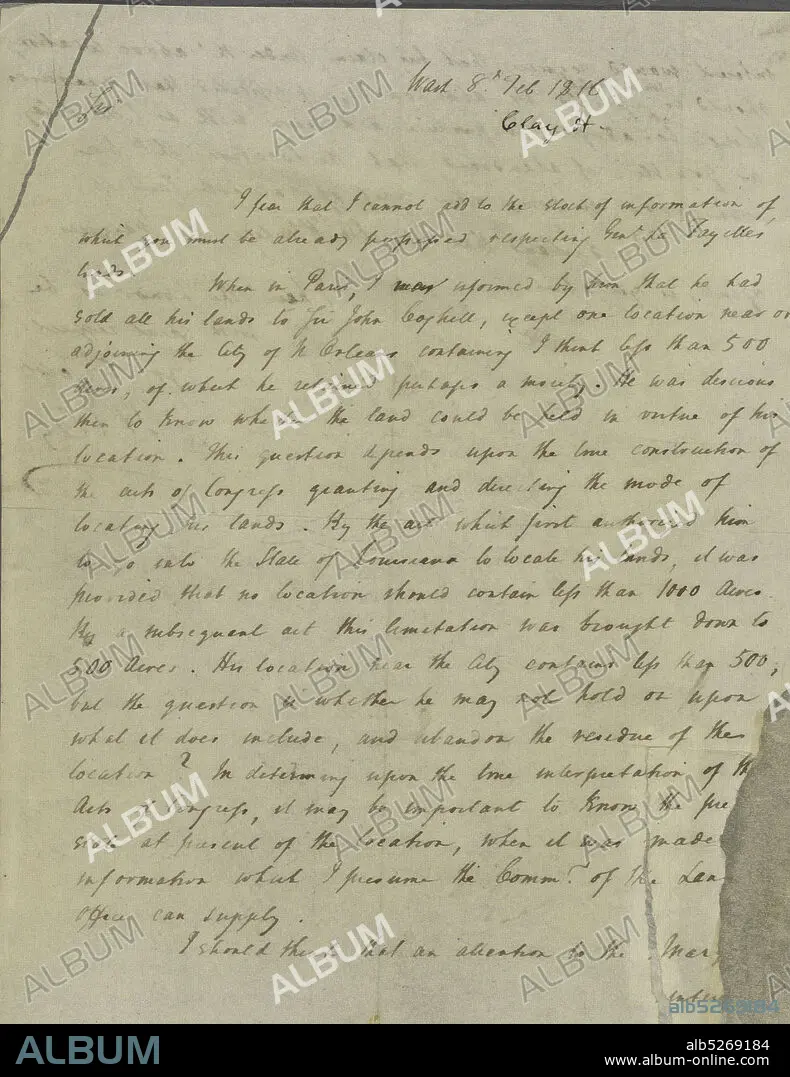 Wash 8.h Feb 1816
Clay H.
I fear that I cannot add to the stock of information of
which you must be already possessed respecting Genl. La Fayettes
lands
When in Paris, I was informed by him that he had
sold all his lands to Sir John Coghill, except one location near or
adjoining the City of N Orleans containing I think less than 500
Acres, of which he retained perhaps a moiety. He was desirous
then to know whether the land could be held in virtue of his
location. This question depends upon the true construction of
the acts of Congress granting and directing the mode of
locating his lands. By the act which first authorized him
to go into the State of Louisiana to locate his lands, it was
provided that no location should contain less than 1000 Acres.
By a subsequent act this limitation was brought down to
500 Acres. His location near the City contains less than 500,
but the question is whether he may not hold on upon
what it does include, and abandon the residue of the
location? In determining upon the true interpretation of th
Acts of Congress, it may be important to know the pre
state at present of the location, when it was made
information which I presume the Commr. of the Lan
Office can supply.
I should think that an attention to the Mary
ALBUM
alb5269184
ALBUM
alb5269184
www.album-online.com